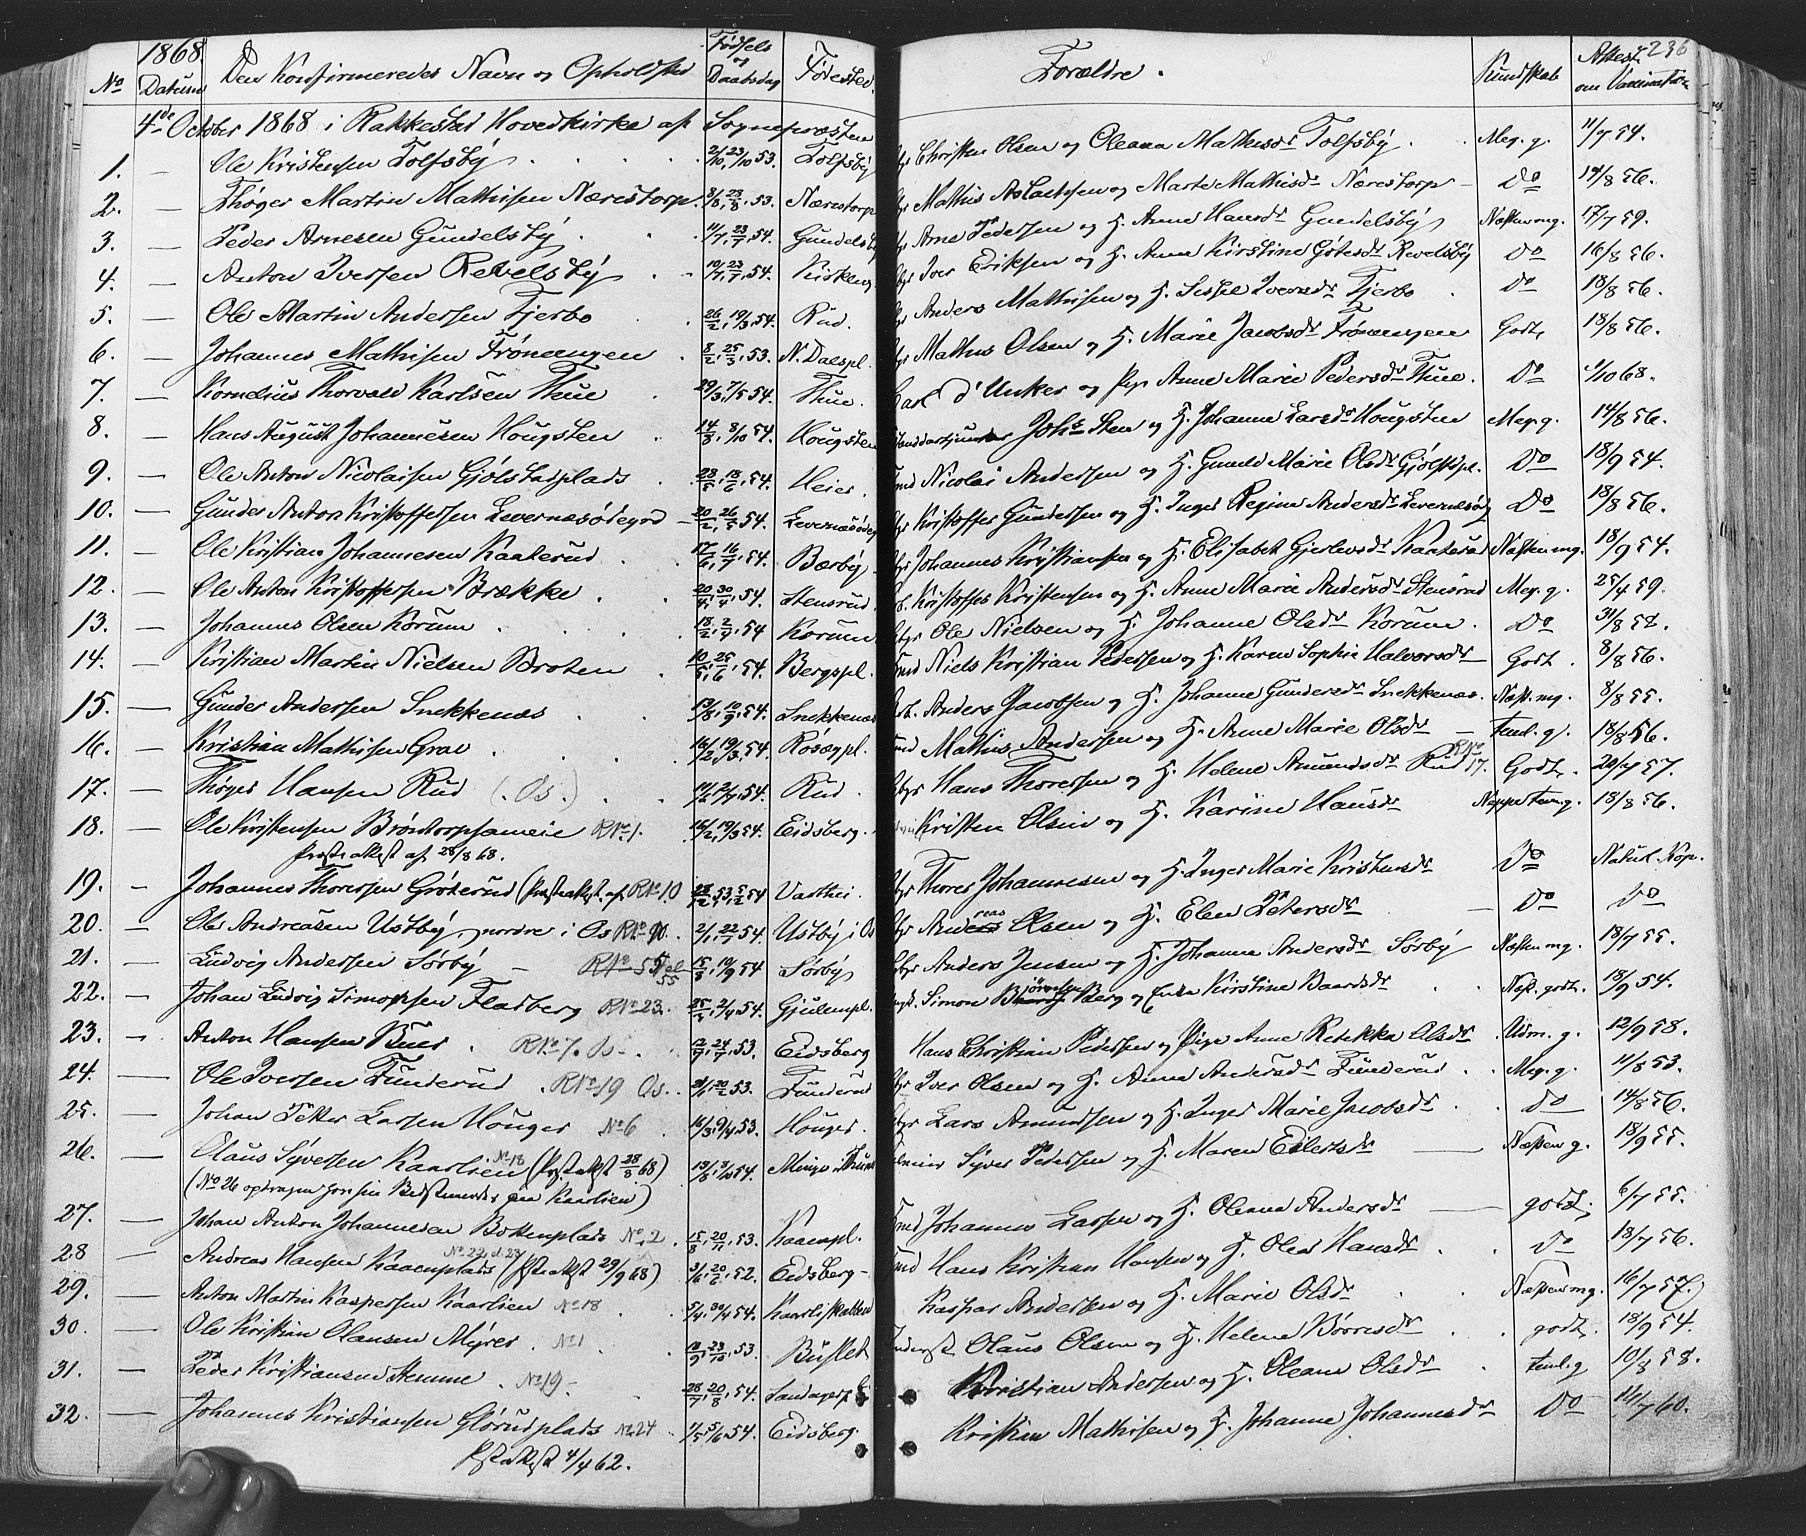 1868. 236
No Datum Den Konfirmeredes Navn og Opholdsted Fødsels og Daabsdag Fødested. Forældre. Kundskab Attest om Vaccination
4de October 1868 i Rakkestad Hovedkirke af Sognepræsten
1. — Ole Kristensen Tolfsby 2/10, 23/10 53. Tolfsby Christen Olsen og Oleana Mathisdr Tolfsby Meg. g. 11/7 54.
2. — Thøger Martin Mathisen Nærestorp 8/8, 28/8, 53. Nærestorp Mathis Aslaksen og Marte Mathisdr Nærestorp — Do 19/8 56.
3. — Peder Arnesen Gundelsby 11/7, 23/7, 54. Gundelsby Arne Pedersen og H. Anne Hansdr Gundelsby Næsten mg. 17/7 59.
4. — Anton Iversen Revelsby 10/7, 23/7, 54. Kirkeng Iver Eriksen og H. Anne Kirstine Götesdr Revelsby Do 16/8 56.
5. — Ole Martin Andersen Fjerbo 26/2, 19/3, 54. Rud. Anders Mathisen og H. Sissel Iversdr Fjerbo Do 18/8 56.
6. — Johannes Mathisen Frönengen 8/2, 25/3, 53. N. Daespl. Mathis Olsen og H. Marie Jacobsdr Frönengen Godt, 18/8 56.
7. — Kornelius Thorvald Karlsen Thue 29/3, 7/5 54. Thue. Carl d'Unker og Pige Anne Marie Pedersdr Thue. Do 1/10 68.
8. — Hans August Johannesen Hougsten 14/8, 8/10 54. Hougsten Johs Sten og H. Johanne Larsdr Hougsten Meg. g. 14/8 56.
9. — Ole Anton Nicolaisen Gjölstadplads 28/5, 18/6, 54. Heier. Nicolai Andersen og H. Gunild Marie Olsdr Gjölstpl. Do 18/9 54.
10. — Gunder Anton Kristoffersen Levernæsödegrd 20/2, 26/5, 54. Levernæsödeg Kristoffer Gundersen og H. Inger Regine Andersdr Levernæsödg Do 18/8 56.
11. — Ole Kristian Johannesen Kaaterud 17/6, 16/7, 54. Bærby Johannes Kristiansen og H. Elisabet Gjerlovsdr Kaaterud Næsten mg. 18/9 54.
12. — Ole Anton Kristoffersen Brække 20/4, 30/4, 54. Stensrud. Kristoffer Kristensen og H. Anne Marie Andersdr Stensrud Meg. g. 25/4 59.
13. — Johannes Olsen Korum 18/2, 2/4, 54 Korum Ole Nielsen og H. Johanne Olsdr Korum. Do 31/8 58.
14. — Kristian Martin Nielsen Braten 10/5, 25/6, 54. Bergspl. Niels Kristian Pedersen og H. Karen Sophie Halvorsdr Godt. 8/8 56.
15. — Gunder Andersen Snekkenæs 13/8, 10/9, 54. Snekkenæs Anders Jacobsen og H. Johanne Gundersdr Snekkenæs. Næst. mg. 8/8 55.
16. — Kristian Mathisen Grav 16/2, 19/3 54. Rösægpl. Mathis Andersen og H. Anne Marie Olsdr — Teml. g. 18/8 56.
17. — Thöger Hansen Rud (Os.) 54. Rud. Hans Thoresen og H. Helene Amundsdr Rud R.No 17. Godt. 20/7 57.
18. — Ole Kristensen Bröntorpsameie R No 1. 16/2, 19/3 54. Eidsberg. Kristen Olsen og H. Karine Hansdr Neppe teml. g. 18/8 56.
Præsteattest af 28/8 68.
19. — Johannes Thoresen Gröterud (Præsteattest af R No 10 28/2, 53, 5/2 54 Vartlei. Thores Johannesen og H. Inger Marie Kristensdr Do Naturl. Kop.
20. — Ole Andreasen Ustby nordre i Os R No 90. 2/1, 22/7 54. Ustby i Os Andreas Olsen og H. Elen Petersdr — Do Do
21. — Ludvig Andersen Sörby — R No 55 15/8, 10/9 54 Sörby Anders Jensen og H. Johanne Andersdr Sörby Næsten mg. 18/7 55.
22. — Johan Ludvig Simonsen Fladberg R No 23. 25/2, 2/4, 54. Gjulempl. Simon Berg og Enke Kirstine Baardsdr Næst. godt. 18/9 54.
23. — Anton Hansen Buer R No 7. Os 12/9, 24/9, 53. Eidsberg Hans Christian Pedersen og Pige Anne Rebekka Olsdr Udm. g. 12/9 58.
24. — Ole Iversen Funderud R No 19 Os. 21/1, 20/2 53. Funderud Iver Olsen og H. Anne Andersdr Funderud Meg. g. 11/8 53.
25. — Johan Petter Larsen Houger No 6 16/3, 9/4 53. Houger. Lars Amundsen og H. Inger Marie Jacobsdr Do 14/8 56.
26. — Olaus Syversen Kaarlien No 18 (Præsteattest 28/8 68) 54. Syver Pedersen og H. Maren Eilertsdr — Næsten g. 18/9 55.
(No 26 optagen for sin Bedstemoder paa Kaarlien)
27. — Johan Anton Johannesen Bottenplads No 2 15/8, 20/11, 53. Kaaenpl. Johannes Larsen og H. Oleana Andersdr — godt. 6/7 55.
28 — Andreas Hansen Kaaenplads No 22 el. 23 (Præsteattest 29/9 68) 3/6, 20/6, 52. Eidsberg — Hans Kristian Hansen og H. Olea Hansdr Do 18/7 56.
29. — Anton Martin Kaspersen Kaarlien No 18 5/4, 30/4 54. Kaarliskatten Kaspar Andersen og H. Marie Olsdr Næsten mg. 16/7 57.
30. — Ole Kristian Olausen Myrer No 1 18/9, 23/10, 53. Buslet Olaus Olsen og H. Helene Börresdr godt. 18/9 54.
31. — Peder Kristiansen Hemme No 19 — 28/7, 20/8, 54. Sandager Kristian Andersen og H. Oleane Olsdr Teml. g 10/8 58.
32. — Johannes Kristiansen Glörudplads No 24 54. Eidsberg. Kristian Mathisen og H. Johanne Johannesdr Do 11/7 60.
Præsteattest 4/4 62.